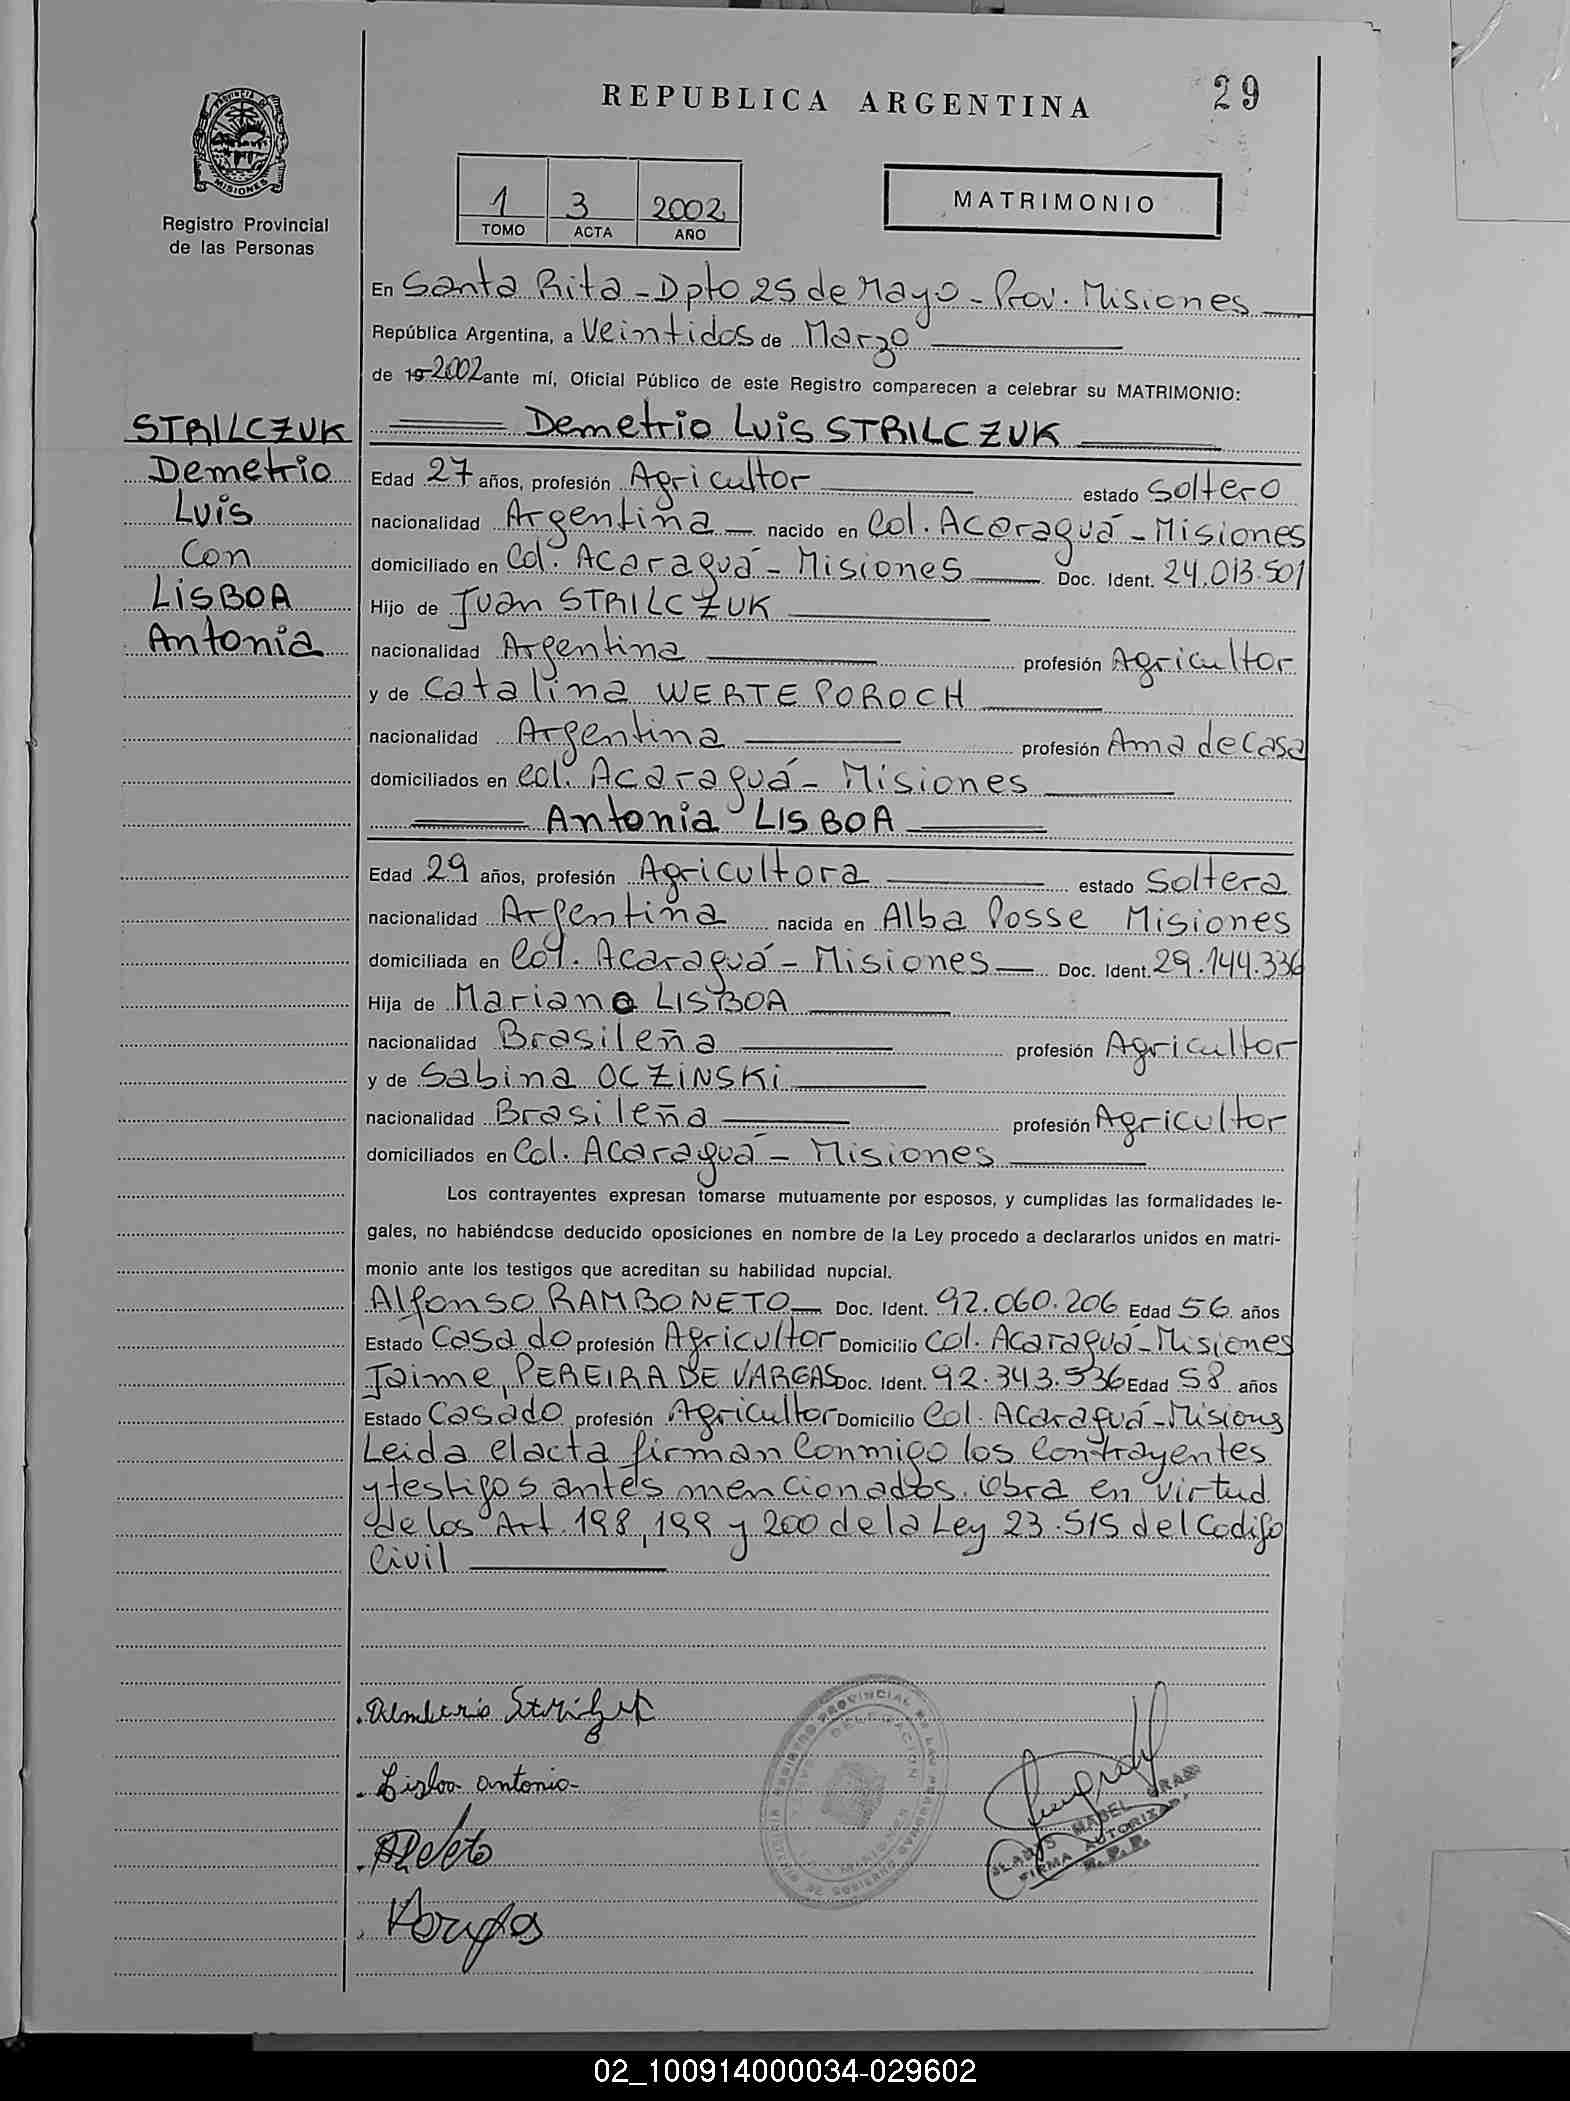 REPUBLICA ARGENTINA
29
PROVINCIA DE
MISIONES
Registro Provincial
de las Personas
1 3 2002
TOMO ACTA AÑO
MATRIMONIO
En Santa Rita - Dpto 25 de Mayo - Prov. Misiones
República Argentina, a Veintidos de Marzo
de 19 2002 ante mí, Oficial Público de este Registro comparecen a celebrar su MATRIMONIO:
STRILCZUK
Demetrio
Luis
Con
LISBOA
Antonia
Demetrio Luis STRILCZUK
Edad 27 años, profesión Agricultor estado Soltero
nacionalidad Argentina nacido en Col. Acaraguá - Misiones
domiciliado en Col. Acaraguá - Misiones Doc. Ident. 24.013.501
Hijo de Juan STRILCZUK
nacionalidad Argentina profesión Agricultor
y de Catalina WERTEPOROCH
nacionalidad Argentina profesión Ama de Casa
domiciliados en Col. Acaraguá - Misiones
Antonia LISBOA
Edad 29 años, profesión Agricultora estado Soltera
nacionalidad Argentina nacida en Alba Posse Misiones
domiciliada en Col. Acaraguá - Misiones Doc. Ident. 29.144.336
Hija de Mariano LISBOA
nacionalidad Brasileña profesión Agricultor
y de Sabina OCZINSKi
nacionalidad Brasileña profesión Agricultor
domiciliados en Col. Acaraguá - Misiones
Los contrayentes expresan tomarse mutuamente por esposos, y cumplidas las formalidades le-
gales, no habiéndose deducido oposiciones en nombre de la Ley procedo a declararlos unidos en matri-
monio ante los testigos que acreditan su habilidad nupcial.
Alfonso RAMBO NETO Doc. Ident. 92.060.206 Edad 56 años
Estado Casado profesión Agricultor Domicilio Col. Acaraguá - Misiones
Jaime, PEREIRA DE VARGAS Doc. Ident. 92.343.536 Edad 58 años
Estado Casado profesión Agricultor Domicilio Col. Acaraguá - Misiones
Leida el acta firman Conmigo los Contrayentes
y testigos antes mencionados. Obra en virtud
de los Art. 198, 199 y 200 de la Ley 23.515 del Codigo
Civil
Lisboa antonia
GLADYS MABEL
FIRMA AUTORIZADA
R. P. P.
02_100914000034-029602